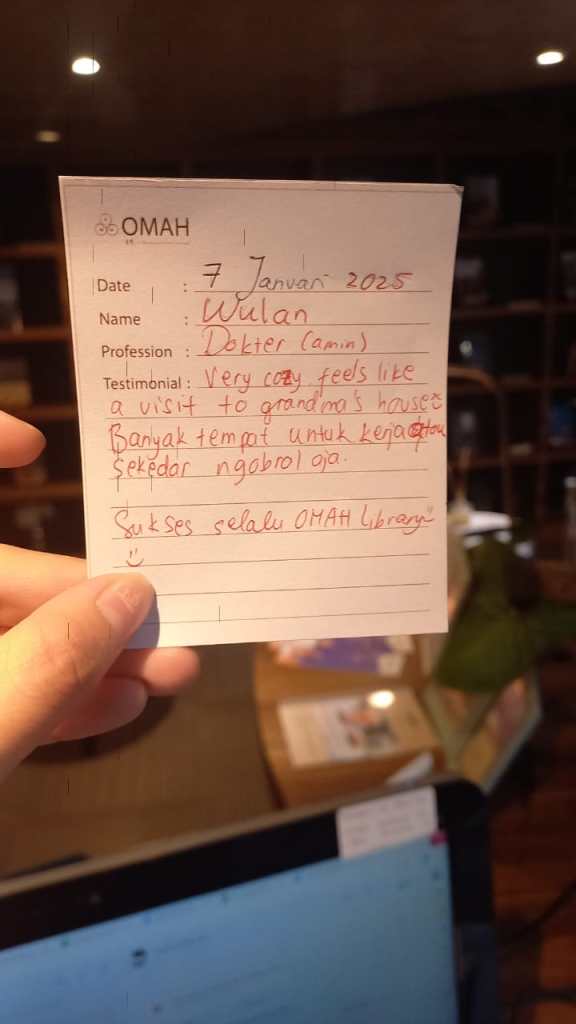 OMAH
Date : 7 Januari 2025
Name : Wulan
Profession : Dokter (amin)
Testimonial : Very cozy, feels like
a visit to grandma's house
Banyak tempat untuk kerja atau
sekedar ngobrol aja.
Sukses selalu OMAH library